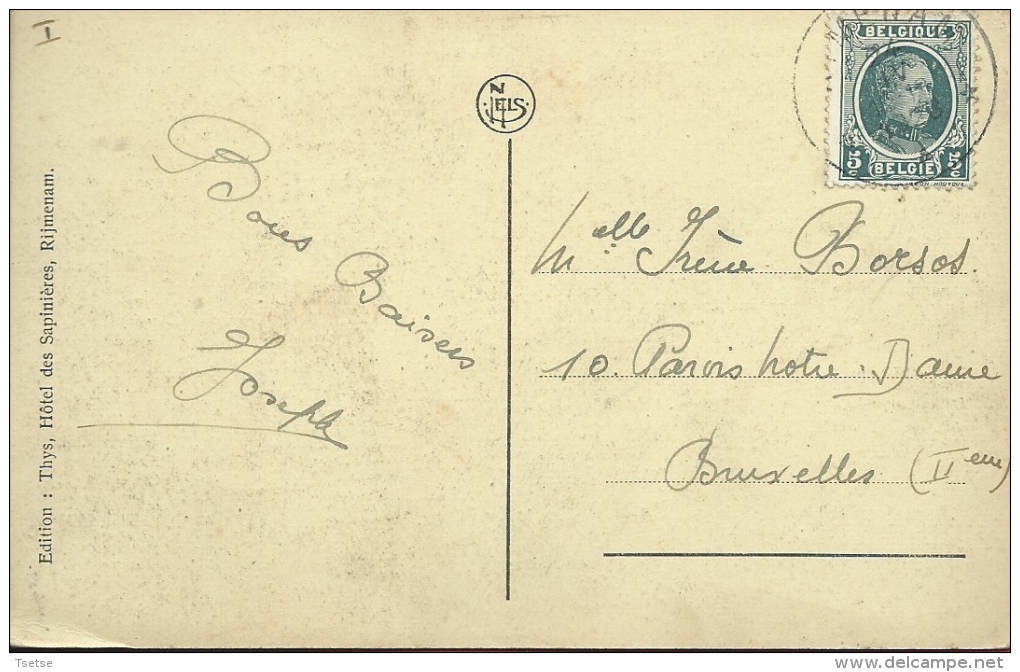 I
NELS
BELGIQUE
5c 5c
BELGIE
Bons Baisers
Joseph
Melle Irène Borsos.
10. Parvis Notre-Dame
Bruxelles (IIeme)
Edition : Thys, Hôtel des Sapinières, Rijmenam.
Tsetse
www.delcampe.net